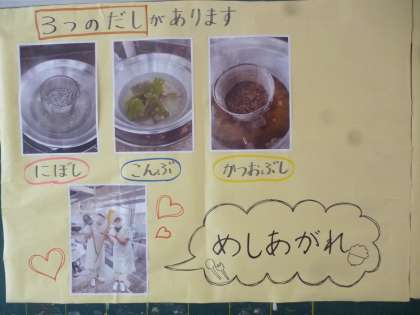 3つのだしがあります
にぼし
こんぶ
かつおぶし
めしあがれ